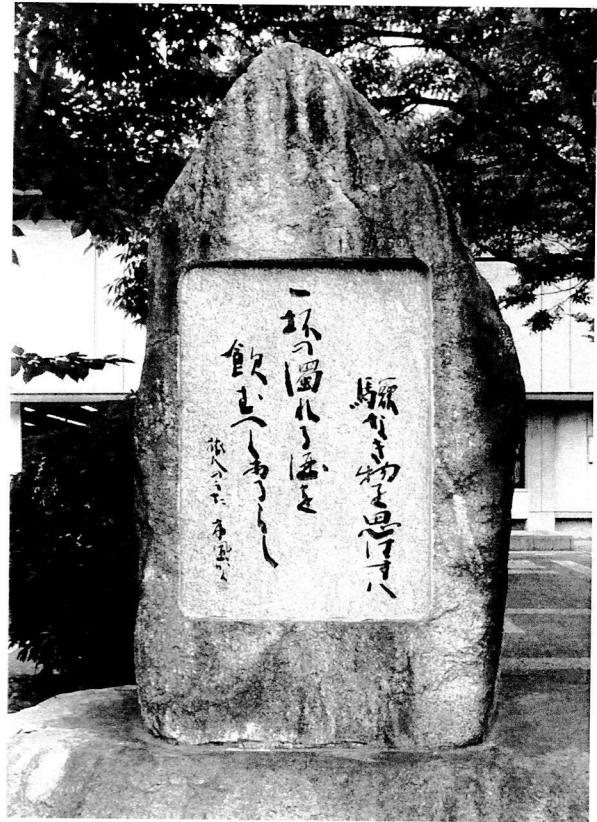 驗なき物を思はすは
一坏の濁れる酒を
飲むへくあるらし
旅人のうた